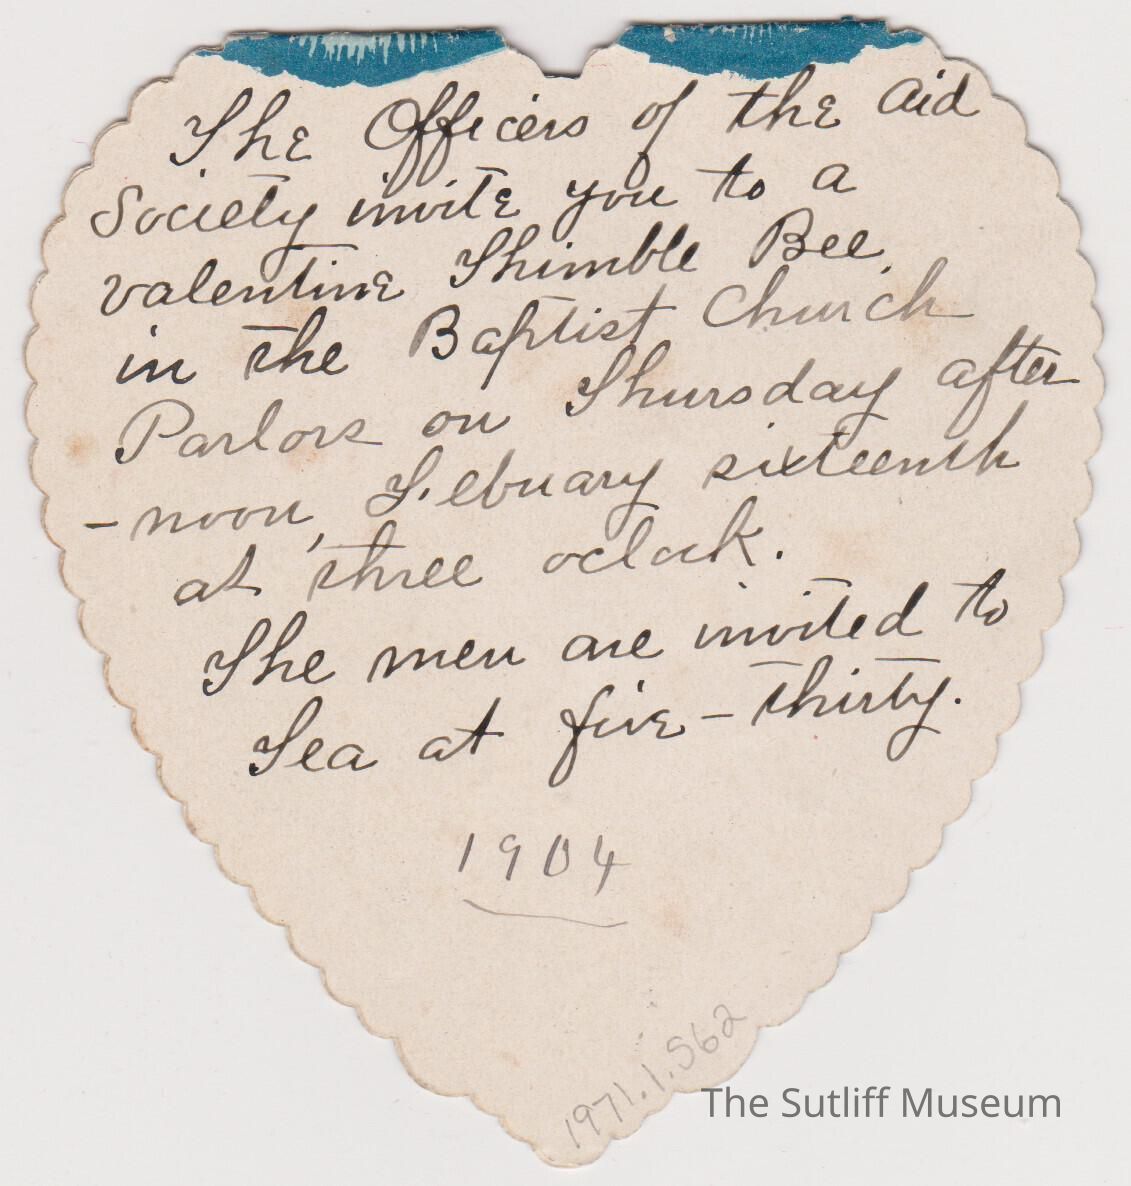 The Officers of the Aid
Society invite you to a
valentine Thimble Bee,
in the Baptist Church
Parlors on Thursday after
-noon, Febuary sixteenth
at three oclock.
The men are invited to
Tea at five-thirty.
1904
1971.1.562
The Sutliff Museum